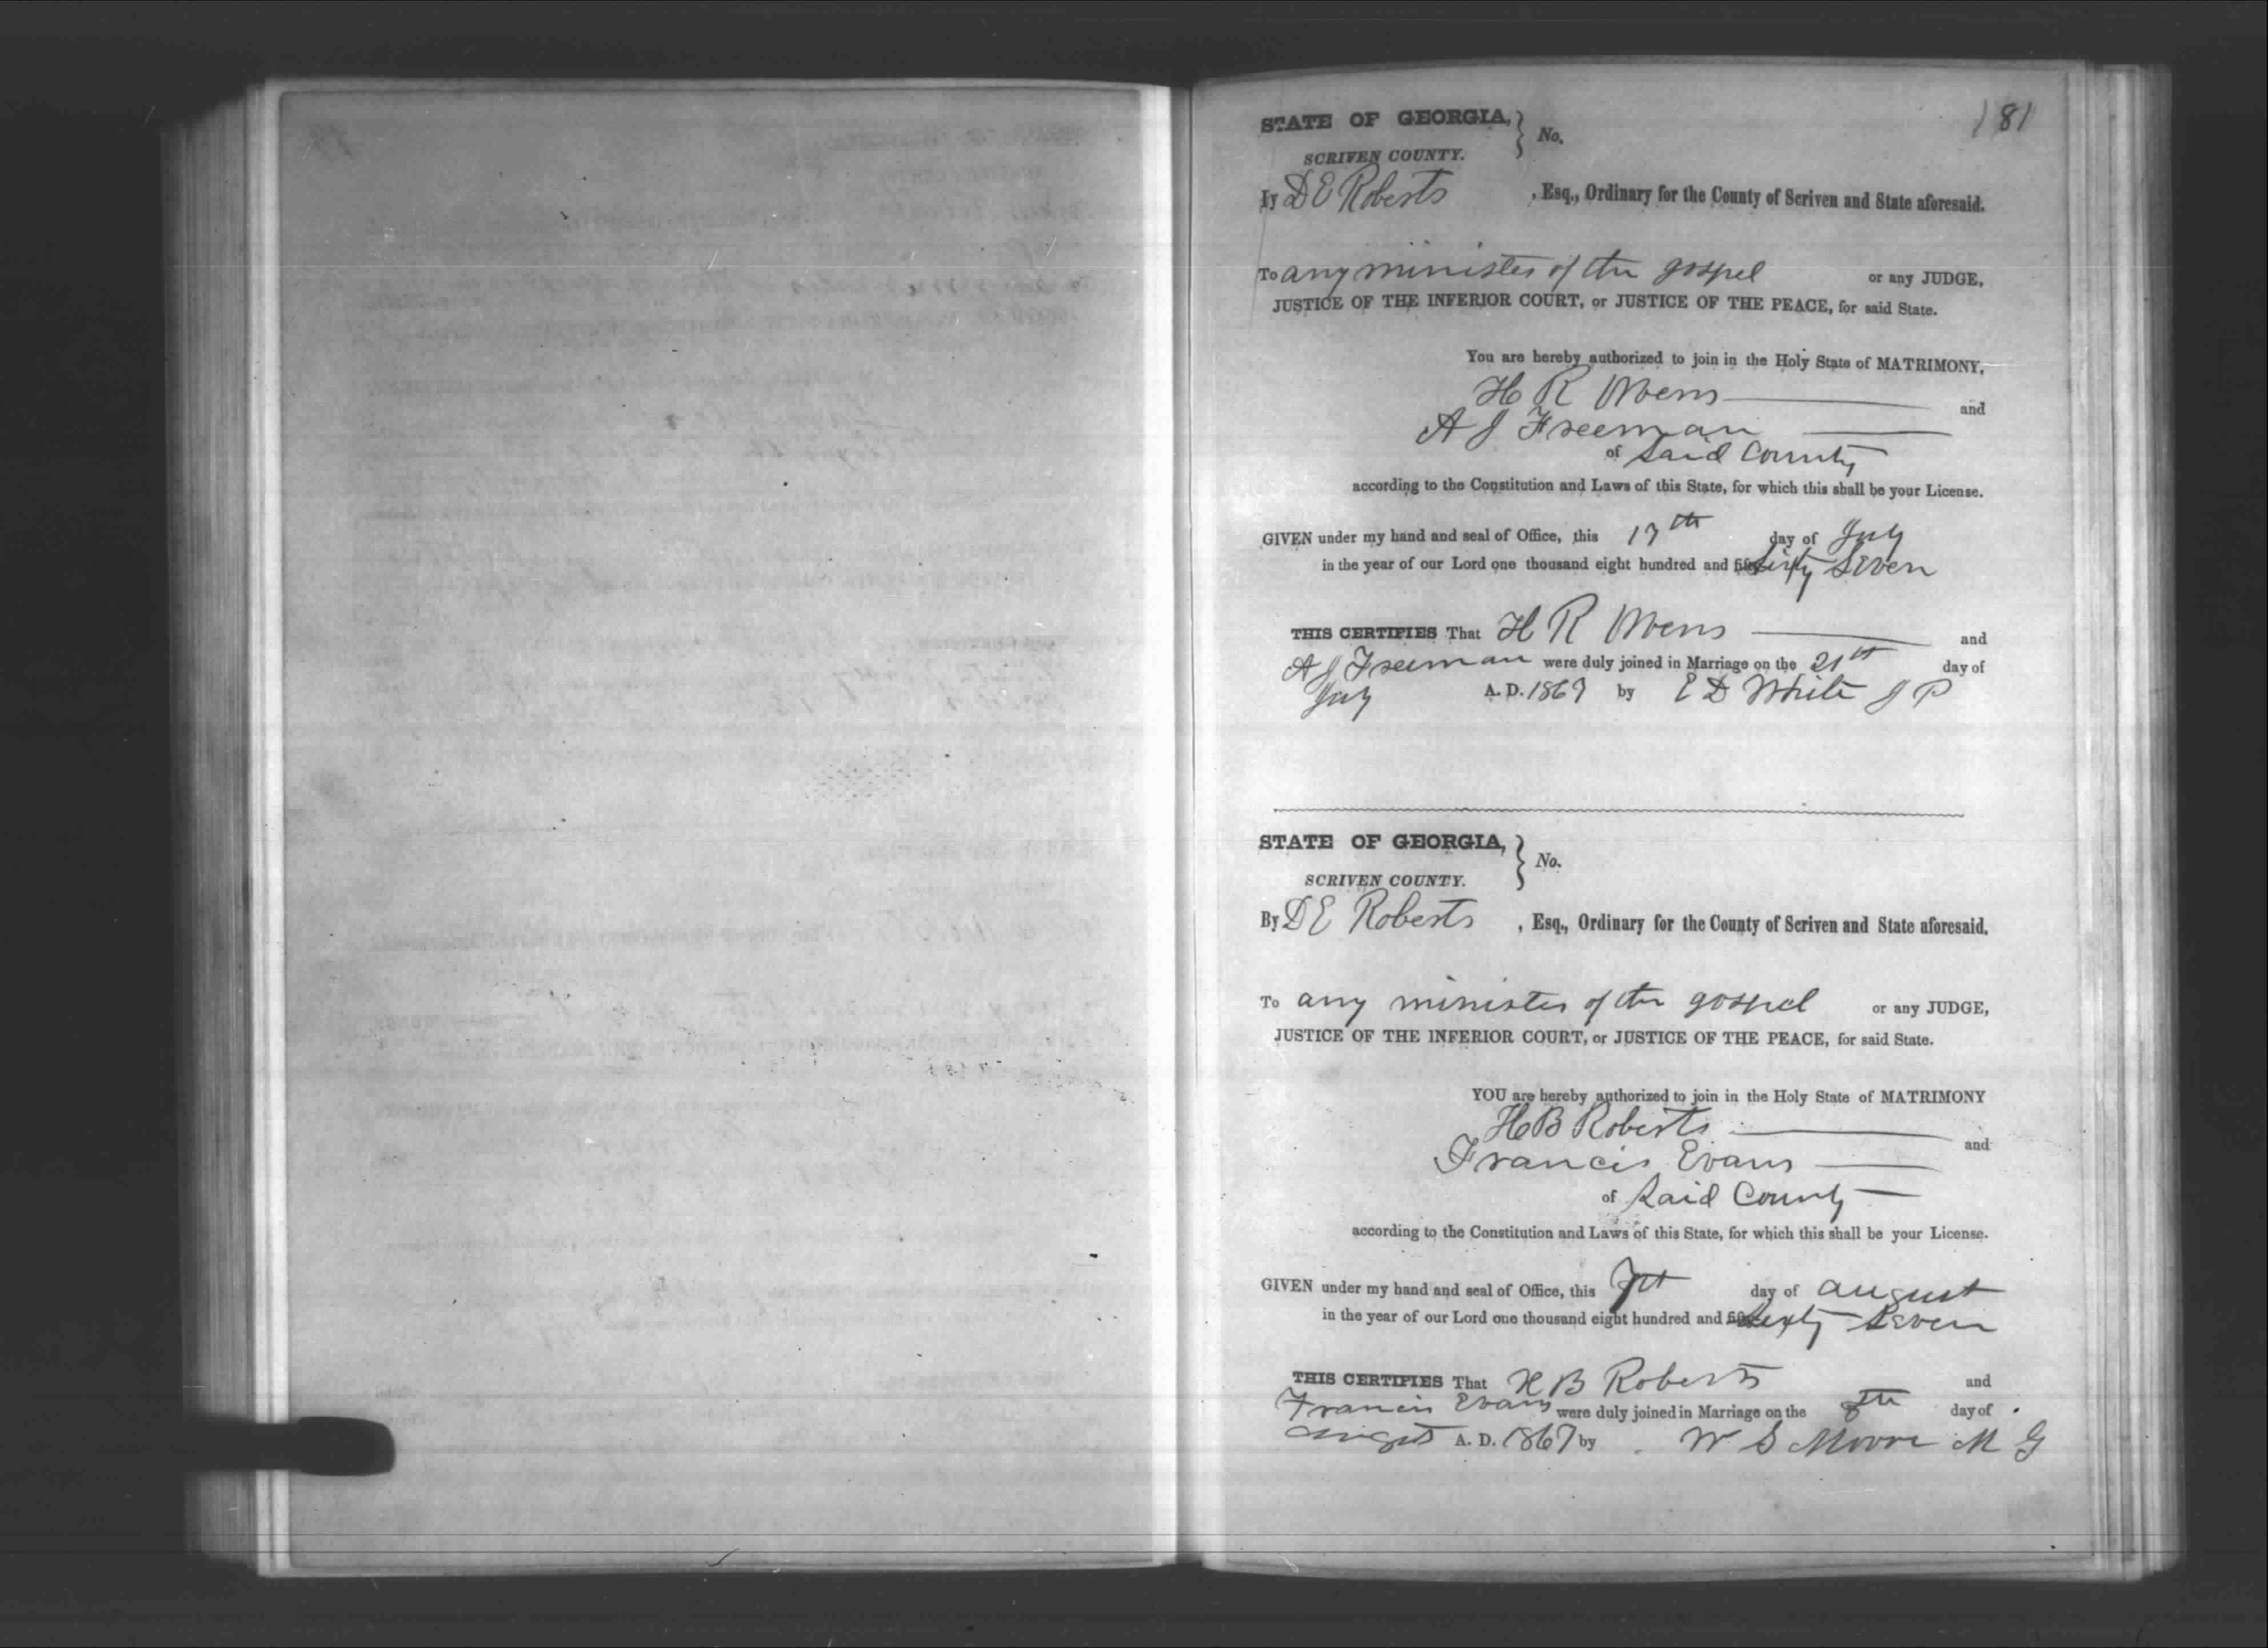 181
STATE OF GEORGIA, } No.
SCRIVEN COUNTY.
By D E Roberts , Esq., Ordinary for the County of Scriven and State aforesaid.
To any minister of the gospel or any JUDGE,
JUSTICE OF THE INFERIOR COURT, or JUSTICE OF THE PEACE, for said State.
You are hereby authorized to join in the Holy State of MATRIMONY,
H R Owens and
A J Freeman
of Said County
according to the Constitution and Laws of this State, for which this shall be your License.
GIVEN under my hand and seal of Office, this 17th day of July
in the year of our Lord one thousand eight hundred and Sixty Seven
THIS CERTIFIES That H R Owens and
A J Freeman were duly joined in Marriage on the 21th day of
July A. D. 1867 by E D White J P
STATE OF GEORGIA, } No.
SCRIVEN COUNTY.
By D E Roberts , Esq., Ordinary for the County of Scriven and State aforesaid.
To any minister of the gospel or any JUDGE,
JUSTICE OF THE INFERIOR COURT, or JUSTICE OF THE PEACE, for said State.
YOU are hereby authorized to join in the Holy State of MATRIMONY
H B Roberts and
Francis Evans
of Said County
according to the Constitution and Laws of this State, for which this shall be your License.
GIVEN under my hand and seal of Office, this day of august
in the year of our Lord one thousand eight hundred and Sixty Seven
THIS CERTIFIES That H B Roberts and
Francis Evans were duly joined in Marriage on the 8th day of
A. D. 1867 by W S Moore M G